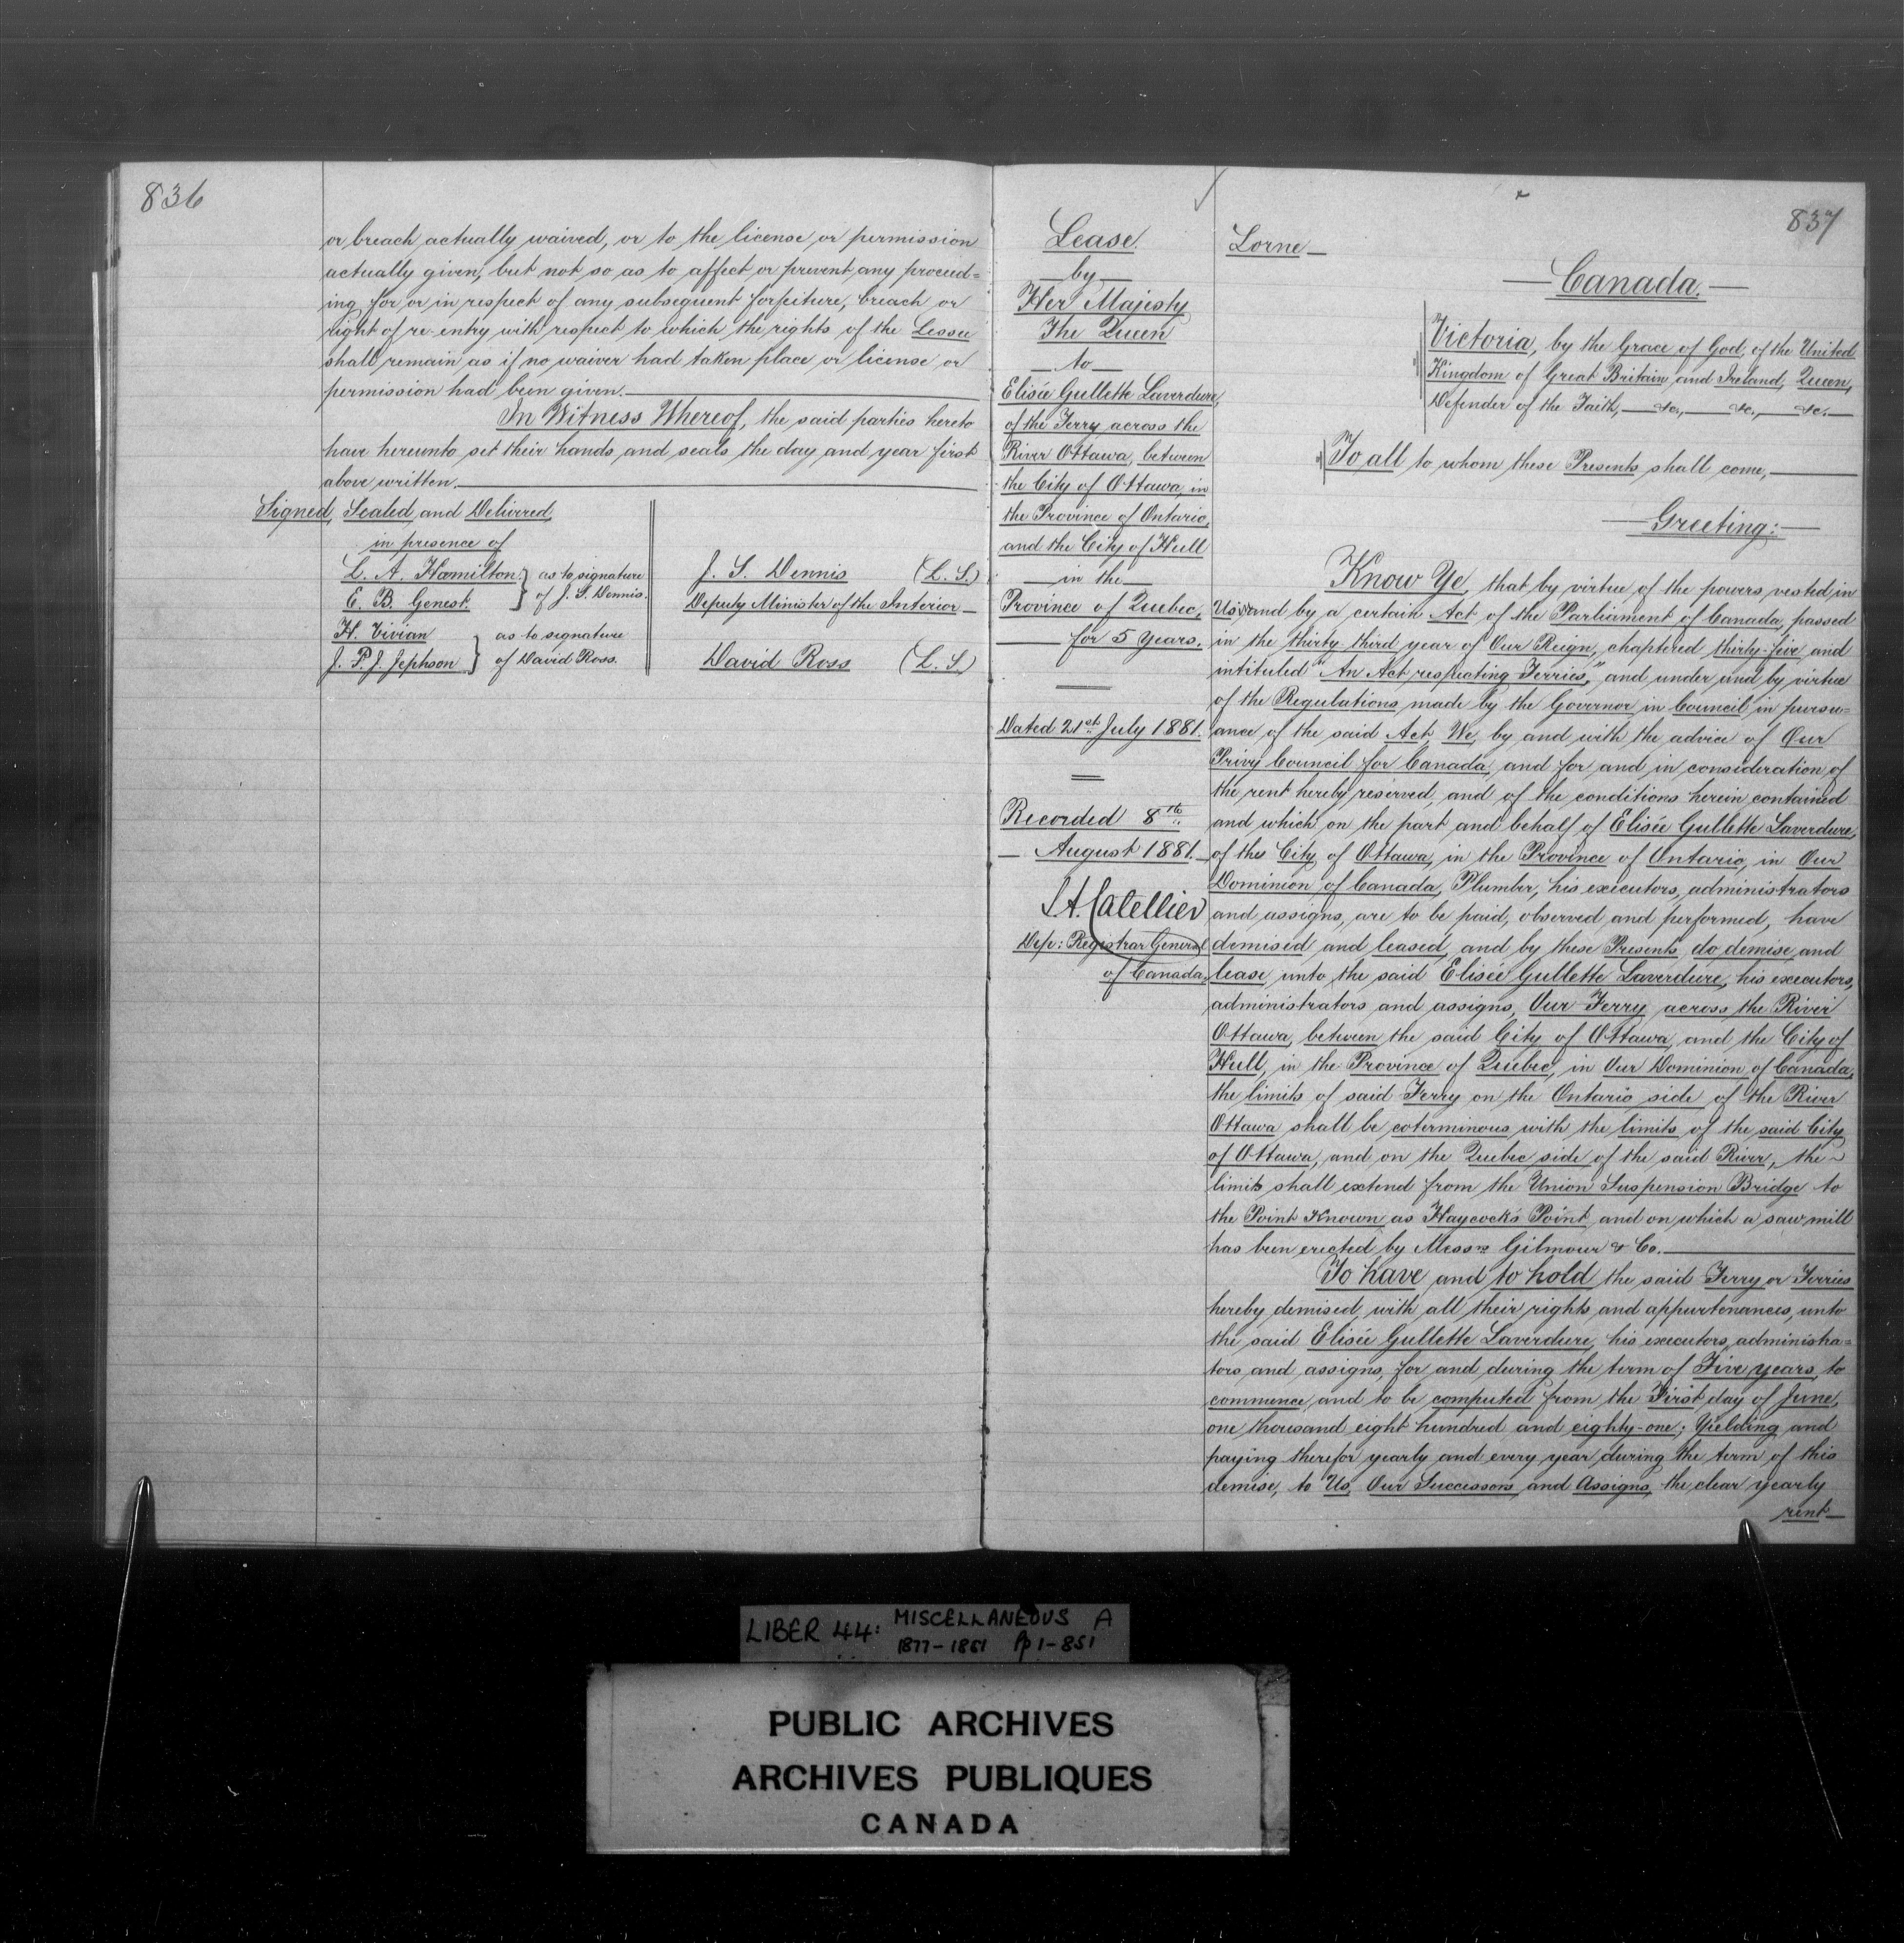 836
or breach actually waived, or to the license or permission
actually given, but not so as to affect or prevent any proceed=
ing for or in respect of any subsequent forfeiture, breach or
right of re-entry with respect to which the rights of the Lessee
shall remain as if no waiver had taken place or license or
permission had been given.
In Witness Whereof, the said parties hereto
have hereunto set their hands and seals the day and year first
above written.
Signed, Sealed and Delivered,
in presence of
L. A. Hamilton } as to signature
E. B. Genest. } of J. S. Dennis.
H. Vivian } as to signature
J. P. J. Jephson } of David Ross.
J. S. Dennis (L.S.)
Deputy Minister of the Interior
David Ross (L.S.)
Lease.
by
Her Majesty
The Queen
to
Elisée Gullette Laverdure,
of the Ferry across the
River Ottawa, between
the City of Ottawa, in
the Province of Ontario,
and the City of Hull
in the
Province of Quebec,
for 5 Years.
Dated 21st July 1881.
Recorded 8th
August 1881.
Catellier
Dep: Registrar General
of Canada.
837
Lorne
Canada.
Victoria, by the Grace of God, of the United
Kingdom of Great Britain and Ireland, Queen,
Defender of the Faith, &c., &c., &c.
To all to whom these Presents shall come,
Greeting:
Know Ye, that by virtue of the powers vested in
Us and by a certain Act of the Parliament of Canada, passed
in the thirty third year of Our Reign, chaptered thirty-five and
intituled "An Act respecting Ferries," and under and by virtue
of the Regulations made by the Governor in Council in pursu=
ance of the said Act, We, by and with the advice of Our
Privy Council for Canada, and for and in consideration of
the rent hereby reserved, and of the conditions herein contained
and which on the part and behalf of Elisée Gullette Laverdure,
of the City of Ottawa, in the Province of Ontario, in Our
Dominion of Canada, Plumber, his executors, administrators
and assigns, are to be paid, observed and performed, have
demised and leased, and by these Presents do demise and
lease unto the said Elisée Gullette Laverdure, his executors,
administrators and assigns, Our Ferry across the River
Ottawa, between the said City of Ottawa, and the City of
Hull, in the Province of Quebec, in Our Dominion of Canada,
the limits of said Ferry on the Ontario side of the River
Ottawa shall be coterminous with the limits of the said City
of Ottawa, and on the Quebec side of the said River, the
limits shall extend from the Union Suspension Bridge to
the Point Known as Haycock's Point, and on which a saw mill
has been erected by Messrs Gilmour & Co.
To have and to hold the said Ferry or Ferries
hereby demised, with all their rights and appurtenances, unto
the said Elisée Gullette Laverdure, his executors, administra=
tors and assigns, for and during the term of Five years, to
commence and to be computed from the First day of June,
one thousand eight hundred and eighty-one; Yielding and
paying therefor yearly and every year during the term of this
demise, to Us, Our Successors and Assigns, the clear yearly
rent
LIBER 44: MISCELLANEOUS A
1877-1881 Pp 1-851
PUBLIC ARCHIVES
ARCHIVES PUBLIQUES
CANADA